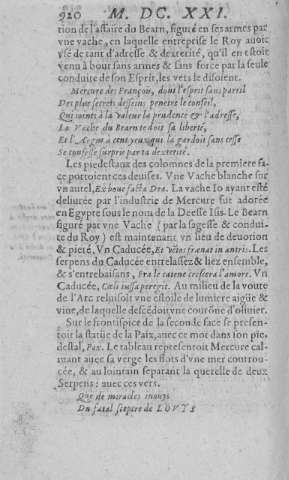 920 M. DC. XXI.
tion de l'affaire du Bearn, figuré en ses armes par
vne vache, en laquelle entreprise le Roy auoit
vsé de tant d'adresse & dexterité, qu'il en estoit
venu à bout sans armes & sans force par la seule
conduite de son Esprit, les vets le disoient.
Mercure des François, dont l'esprit sans pareil
Des plus secrets desseins penetre le conseil,
Qui ioints à la valeur la prudence & l'adresse,
La Vache du Bearn te dois sa liberté,
Et l'Argus à cent yeux, qui la gardoit sans cesse
Se confesse surpris par ta dexterité.
Les piedestaux des colomnes de la premiere fa-
ce portoient ces deuises. Vne Vache blanche sur
vn autel, Ex boue facta Dea. La vache Io ayant esté
deliurée par l'industrie de Mercure fut adorée
en Egypte sous le nom de la Deesse Isis. Le Bearn
figuré par vne Vache (par la sagesse & condui-
te du Roy) est maintenant vn lieu de deuotion
& pieté, Vn Caducée, Et viens franai in antris. Les
serpens du Caducée entrelassez & liez ensemble,
& s'entrebaisans, Fra le catene crescera l'amore. Vn
Caducée, Cæli iussa peregit. Au milieu de la voute
de l'Arc reluisoit vne estoile de lumiere aigüe &
viue, de laquelle descédoit vne courône d'oliuier.
Sur le frontispice de la seconde face se presen-
toit la statüe de la Paix, auec ce mot dans son pie-
destal, Pax. Le tableau representoit Mercure cal-
mant auec sa verge les flots d'vne mer courrou-
cée, & au lointain separant la querelle de deux
Serpens: auec ces vers.
Que de miracles inouys
Du fatal sceptre de LOVYS